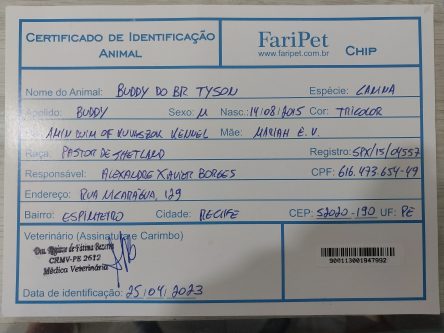 CERTIFICADO DE IDENTIFICAÇÃO ANIMAL
FariPet
www.faripet.com.br
CHIP
Nome do Animal: BUDDY DO BR TYSON Espécie: CANINA
Apelido: BUDDY Sexo: M Nasc.: 14/08/2015 Cor: TRICOLOR
AMIN DUIM OF KUVASZOK KENNEL Mãe: MARIAH E.V.
Raça: PASTOR DE SHETLAND Registro: SPX/15/04557
Responsável: ALEXANDRE XAVIER BORGES CPF: 616.473.654-49
Endereço: RUA NICARÁGUA, 129
Bairro: ESPINHEIRO Cidade: RECIFE CEP: 52020-190 UF: PE
Veterinário (Assinatura e Carimbo)
Dra. Regiane de Fátima Bezerra
CRMV-PE 2612
Médica Veterinária
900113001947992
Data de identificação: 25/04/2023